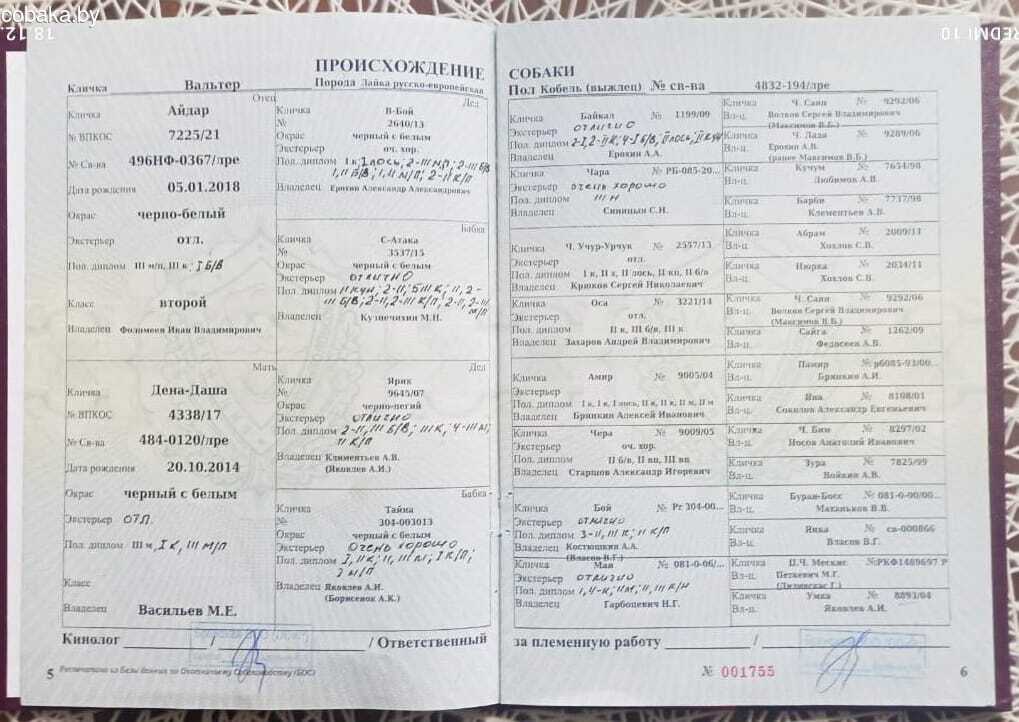 cobaka.by
18.12
REDMI 10
ПРОИСХОЖДЕНИЕ
Кличка Вальтер Порода Лайка русско-европейская
Отец
Кличка Айдар
№ ВПКОС 7225/21
№ Св-ва 496НФ-0367/лре
Дата рождения 05.01.2018
Окрас черно-белый
Экстерьер отл.
Пол. диплом III м/п, III к; I Б/В
Класс второй
Владелец Фоломеев Иван Владимирович
Дед
Кличка В-Бой
№ 2640/13
Окрас черный с белым
Экстерьер оч. хор.
Пол. диплом
Владелец Ерохин Александр Александрович
Бабка
Кличка С-Атака
№ 3537/15
Окрас черный с белым
Экстерьер отлично
Пол. диплом
Владелец Кузнечихин М.Н.
Мать
Кличка Дена-Даша
№ ВПКОС 4338/17
№ Св-ва 484-0120/лре
Дата рождения 20.10.2014
Окрас черный с белым
Экстерьер ОТЛ.
Пол. диплом III м, I К, III М/П
Класс
Владелец Васильев М.Е.
Дед
Кличка Ярик
№ 9645/07
Окрас черно-пегий
Экстерьер отлично
Пол. диплом 2-II, III Б/В; III К, 4-III М;
II К/П
Владелец Климентьев А.В.
(Яковлев А.И.)
Бабка
Кличка Тайна
№ 304-003013
Окрас черный с белым
Экстерьер Очень хорошо
Пол. диплом
Владелец Яковлев А.И.
(Борисенок А.К.)
Кинолог / / Ответственный
5 Распечатано из Базы данных по Охотничьему Собаководству (БОС)
СОБАКИ
Пол Кобель (выжлец) № св-ва 4832-194/лре
Кличка Байкал № 1199/09
Экстерьер отлично
Пол. диплом
Владелец Ерохин А.А.
Кличка Чара № РБ-085-20...
Экстерьер очень хорошо
Пол. диплом III Н
Владелец Синицын С.Н.
Кличка Ч. Учур-Урчук № 2557/13
Экстерьер отл.
Пол. диплом I к, II х, II лось, II вп, II б/в
Владелец Крюков Сергей Николаевич
Кличка Оса № 3221/14
Экстерьер отл.
Пол. диплом II к, III б/в, III к
Владелец Захаров Андрей Владимирович
Кличка Амир № 9005/04
Экстерьер
Пол. диплом I к, I к, I лось, II к, II к, II м, II м
Владелец Брянкин Алексей Иванович
Кличка Чера № 9009/05
Экстерьер оч. хор.
Пол. диплом II б/в, II вп, III вп
Владелец Старшов Александр Игоревич
Кличка Бой № Рг 304-00...
Экстерьер отлично
Пол. диплом 3-II, III К; II К/П
Владелец Костюшкин А.А.
(Власов В.Г.)
Кличка Мая № 081-0-06/...
Экстерьер отлично
Пол. диплом
Владелец Гарбоцевич Н.Г.
Кличка Ч. Саян № 9292/06
Вл-ц. Волков Сергей Владимирович
(Максимов В.Б.)
Кличка Ч. Лада № 9289/06
Вл-ц. Ерохин А.В.
(ранее Максимов В.Б.)
Кличка Кучум № 7654/98
Вл-ц. Любимов А.В.
Кличка Барби № 7737/98
Вл-ц. Клементьев А.В.
Кличка Абрам № 2009/11
Вл-ц. Хохлов С.В.
Кличка Июрка № 2034/11
Вл-ц. Хохлов С.В.
Кличка Ч. Саян № 9292/06
Вл-ц. Волков Сергей Владимирович
(Максимов В.Б.)
Кличка Сайга № 1262/09
Вл-ц. Федосеев А.В.
Кличка Памир № рб085-93/00...
Вл-ц. Брянкин А.И.
Кличка Яна № 8108/01
Вл-ц. Соколов Александр Евгеньевич
Кличка Ч. Бим № 8297/02
Вл-ц. Носов Анатолий Иванович
Кличка Зура № 7825/99
Вл-ц. Войкин А.В.
Кличка Буран-Босс № 081-0-00/00...
Вл-ц. Маханьков В.В.
Кличка Янка № св-000866
Вл-ц. Власов В.Г.
Кличка П.Ч. Мескис № РКФ1489697 Р
Вл-ц. Петкевич М.Г.
Кличка Умка № 8893/04
Вл-ц. Яковлев А.И.
за племенную работу /
№ 001755
6